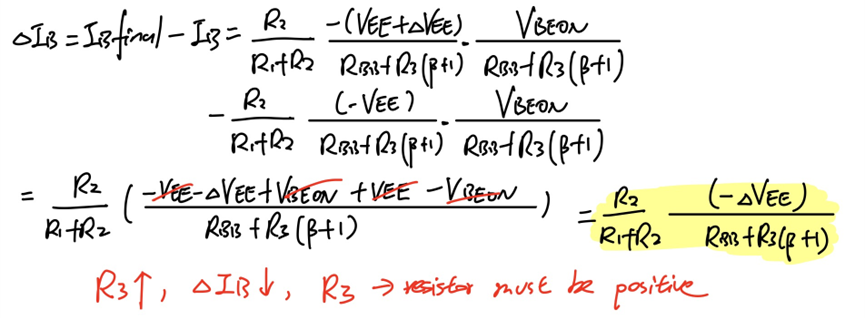 ΔIB = IBfinal - IB = R2/(R1+R2) · -(VEE+ΔVEE)/(RBB+R3(β+1)) - VBEON/(RBB+R3(β+1))
- R2/(R1+R2) · (-VEE)/(RBB+R3(β+1)) - VBEON/(RBB+R3(β+1))
= R2/(R1+R2) ( (-VEE-ΔVEE+VBEON+VEE-VBEON)/(RBB+R3(β+1)) ) = R2/(R1+R2) (-ΔVEE)/(RBB+R3(β+1))
R3↑, ΔIB↓, R3 → resistor must be positive